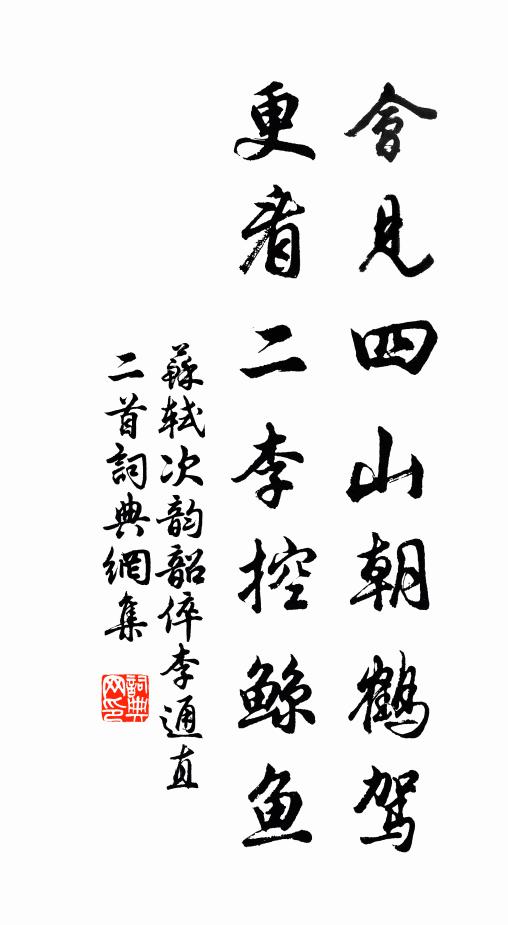 會見四山朝鶴駕
更看二李控鲸鱼
蘇轼次韵韶倅李通直
二首詞典網集
詞典
网印